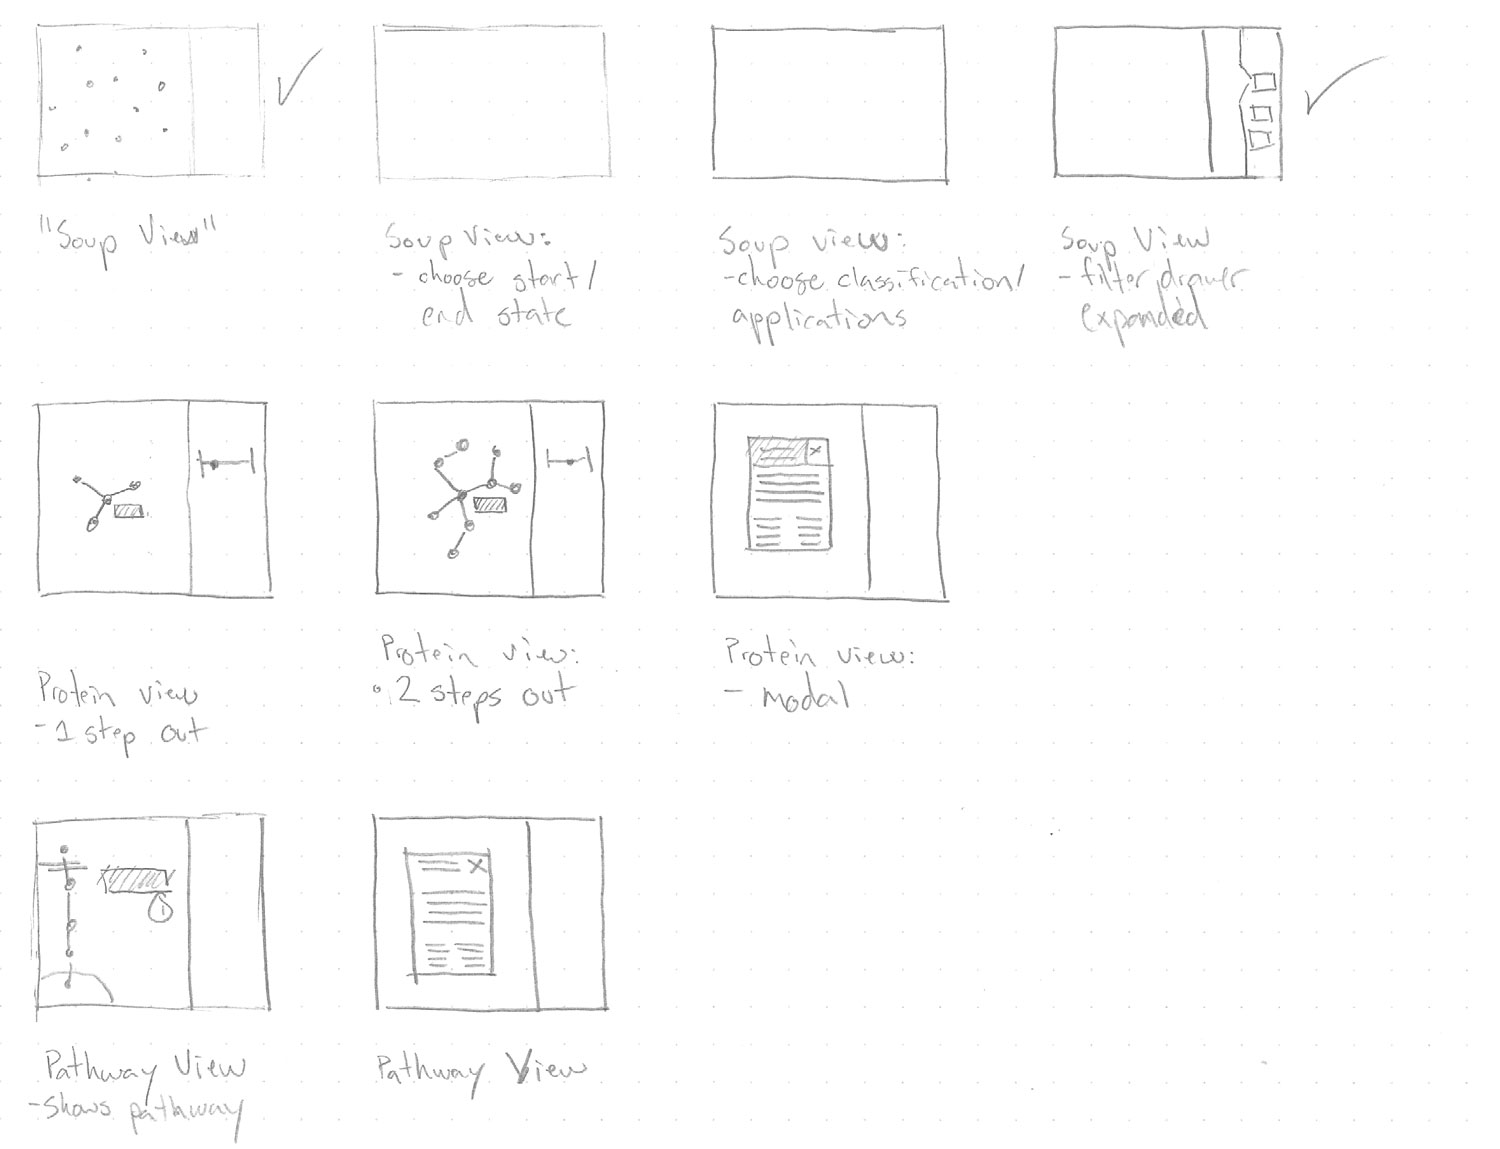 "Soup View"
Soup View:
- choose start/
end state
Soup view:
- choose classification/
applications
Soup View
- filter drawer
expanded
Protein view
- 1 step out
Protein view:
• 2 steps out
Protein view:
- modal
Pathway View
- shows pathway
Pathway View